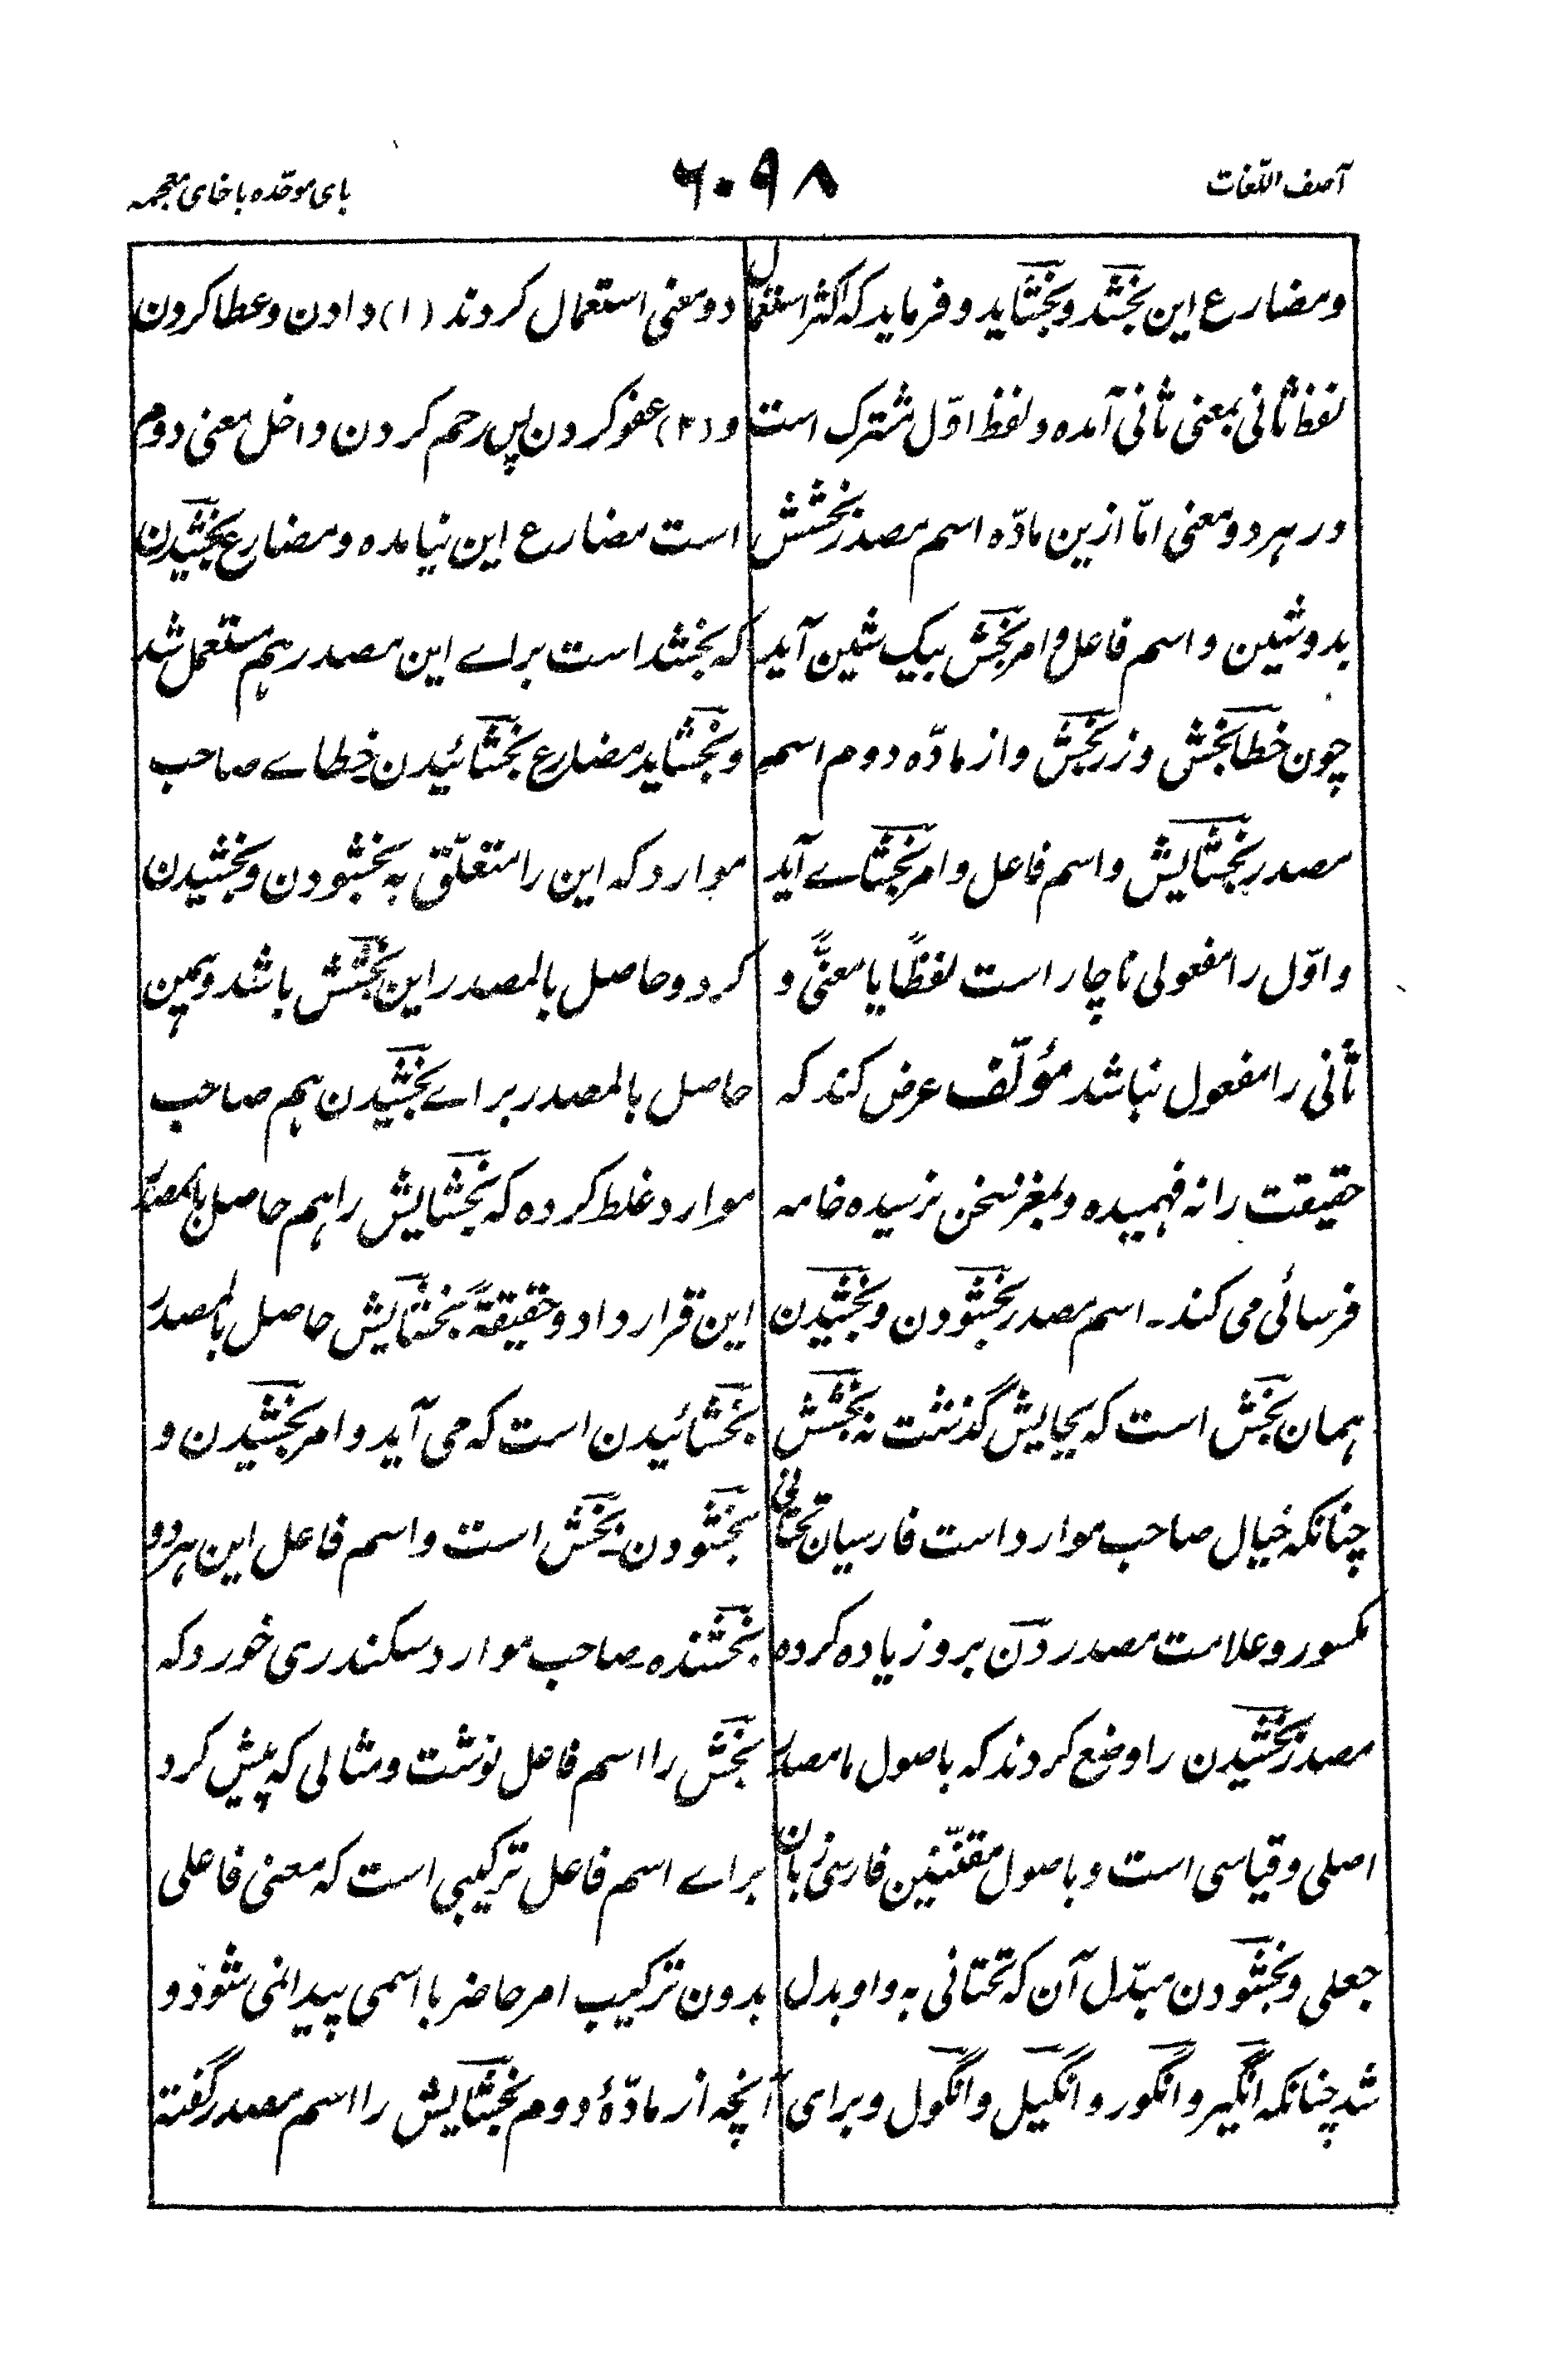 آصف اللّغات
۶۰۹۸
بای موحّده با خای معجمه
و مضارع این بخشد و بخشاید و فرماید که اکثر استعمال
لفظ ثانی بمعنی ثانی آمده و لفظ اوّل مشترک است
در هر دو معنی امّا ازین مادّه اسم مصدر بخشش
بدو شین و اسم فاعل و امر بخش بیک شین آید
چون خطا بخش و زر بخش و از مادّه دوم اسم
مصدر بخشایش و اسم فاعل و امر بخشاے آید
و اوّل را مفعولی ناچار است لفظًا یا معنًی و
ثانی را مفعول نباشد مؤلّف عرض کند که
حقیقت را نه فهمیده و بمغز سخن نرسیده خامه
فرسائی می کند ۔ اسم مصدر بخشودن و بخشیدن
همان بخش است که بجایش گذشت نه بخشش
چنانکه خیال صاحب موارد است فارسیان تحتانی
مکسور و علامت مصدر دن برو زیاده کرده
مصدر بخشیدن را وضع کردند که باصول ما مصدر
اصلی و قیاسی است و باصول مقنّنین فارسی زبان
جعلی و بخشودن مبدّل آن که تحتانی به واو بدل
شد چنانکه انگیر و انگور و انگیل و انگول و برای
دو معنی استعمال کردند (۱) دادن و عطا کردن
و (۲) عفو کردن پس رحم کردن داخل معنی دوم
است مضارع این نیامده و مضارع بخشیدن
که بخشد است براے این مصدر هم مستعمل شد
و بخشاید مضارع بخشائیدن خطاے صاحب
موارد که این را متعلّق به بخشودن و بخشیدن
کرد و حاصل بالمصدر این بخشش باشد و همین
حاصل بالمصدر براے بخشیدن هم صاحب
موارد غلط کرده که بخشایش را هم حاصل بالمصدر
این قرار داد و حقیقةً بخشایش حاصل بالمصدر
بخشائیدن است که می آید و امر بخشیدن و
بخشودن ۔ بخش است و اسم فاعل این هر دو
بخشنده ۔ صاحب موارد سکندری خورد که
بخش را اسم فاعل نوشت و مثالی که پیش کرد
براے اسم فاعل ترکیبی است که معنی فاعلی
بدون ترکیب امر حاضر با اسمی پیدا نمی شود و
آنچه از مادّهٔ دوم بخشایش را اسم مصدر گفته